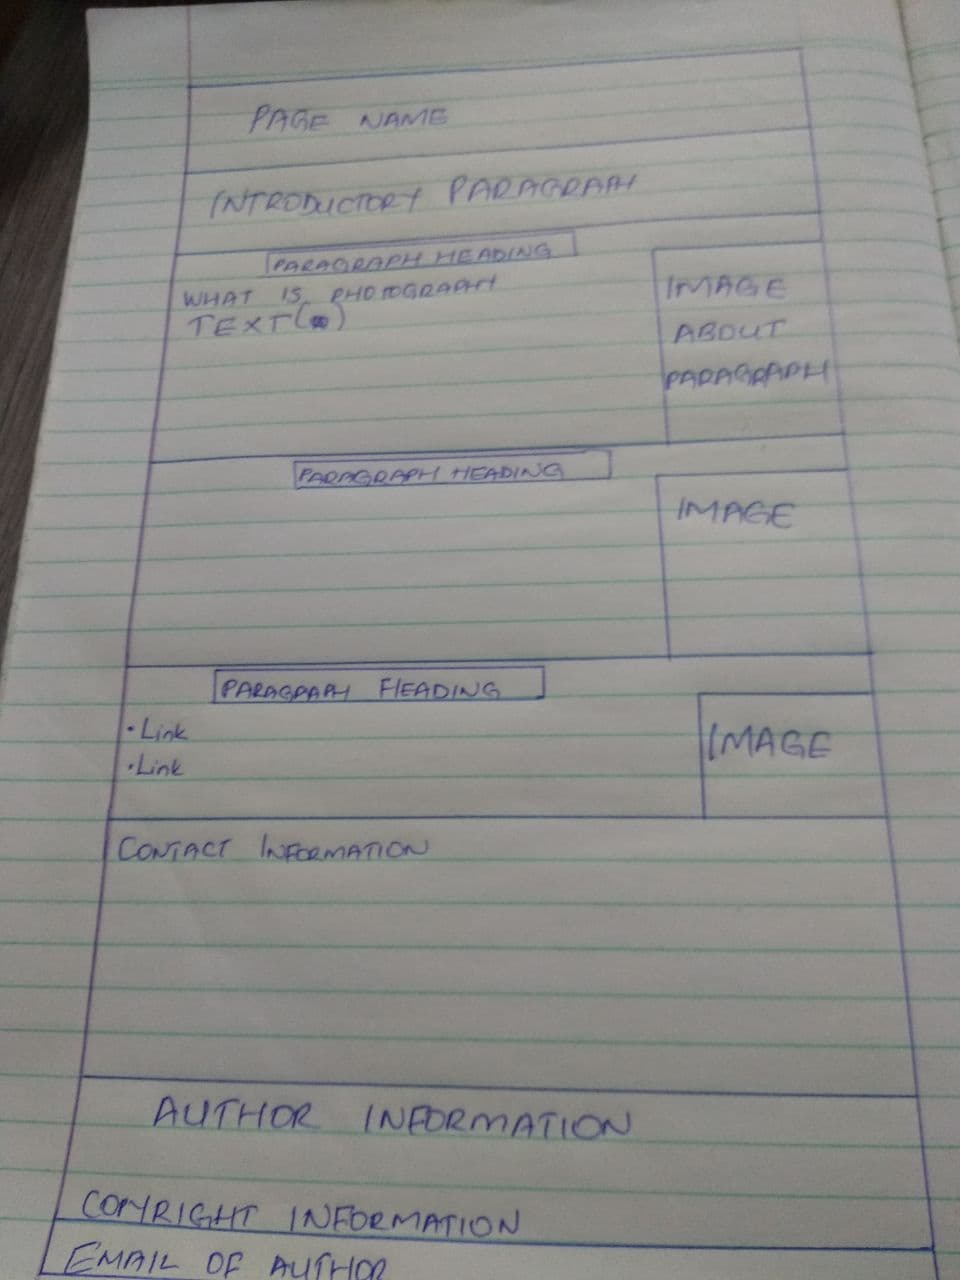 PAGE NAME
INTRODUCTORY PARAGRAPH
PARAGRAPH HEADING
WHAT IS PHOTOGRAPH
TEXT( )
IMAGE
ABOUT
PARAGRAPH
PARAGRAPH HEADING
IMAGE
PARAGRAPH HEADING
• Link
• Link
IMAGE
CONTACT INFORMATION
AUTHOR INFORMATION
COPYRIGHT INFORMATION
EMAIL OF AUTHOR